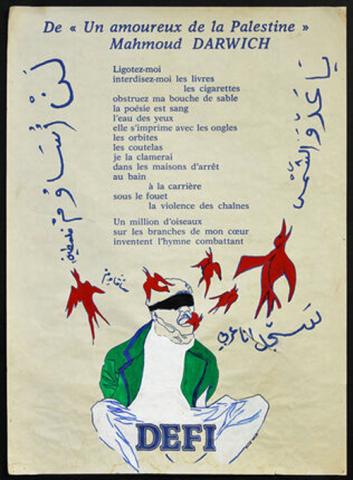 De « Un amoureux de la Palestine »
Mahmoud DARWICH
Ligotez-moi
interdisez-moi les livres
les cigarettes
obstruez ma bouche de sable
la poésie est sang
l'eau des yeux
elle s'imprime avec les ongles
les orbites
les coutelas
je la clamerai
dans les maisons d'arrêt
au bain
à la carrière
sous le fouet
la violence des chaînes
Un million d'oiseaux
sur les branches de mon cœur
inventent l'hymne combattant
لن أساوم
يا عدو الشمس
سأقاوم
سجل أنا عربي
DEFI